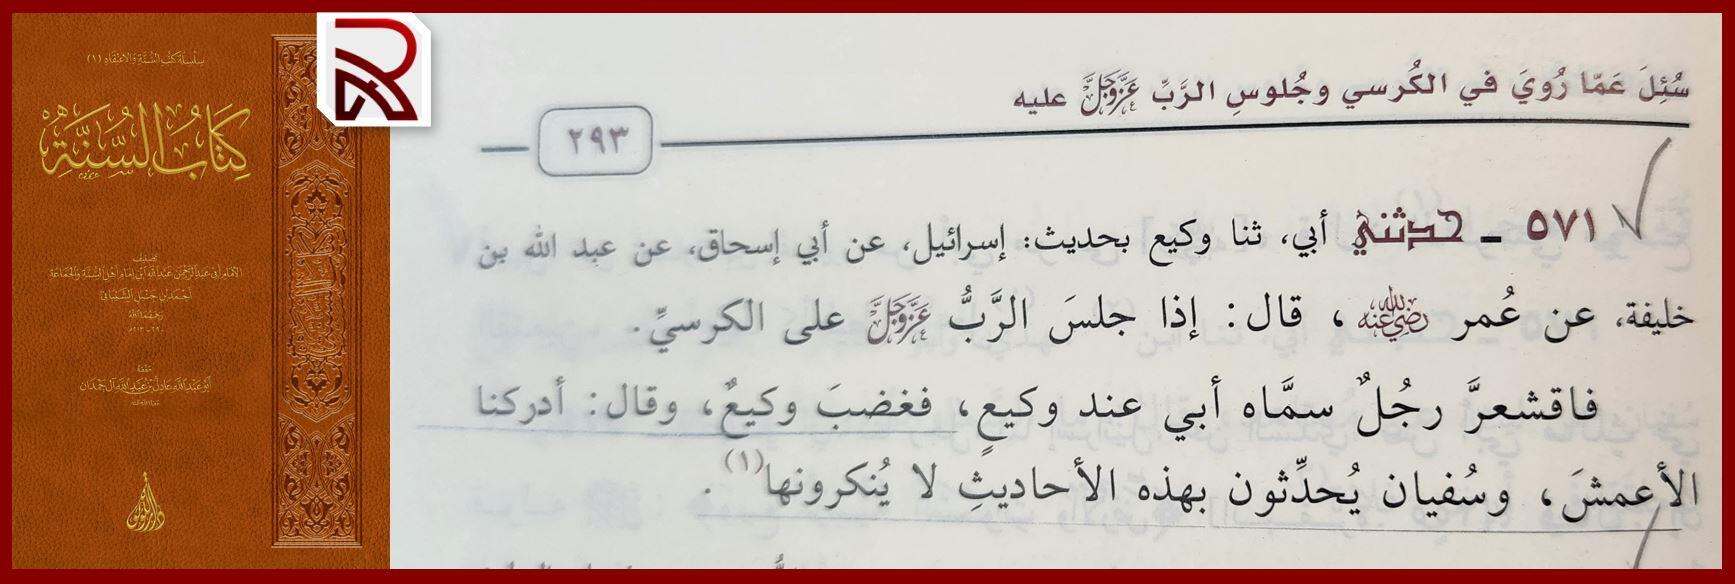 سلسلة كتب السنة والاعتقاد (١)
كِتَابُ السُّنَّةِ
تصنيف
الإمام أبي عبد الرحمن عبد الله ابن إمام أهل السنة والجماعة
أحمد بن حنبل الشيباني
رحمهما الله
حققه
أبو عبد الله عادل بن عبد الله آل حمدان
سُئِلَ عَمّا رُويَ في الكُرسي وجُلوسِ الرَّبِّ عَزَّوَجَلَّ عليه
٢٩٣
٥٧١ - حدثني أبي، ثنا وكيع بحديث: إسرائيل، عن أبي إسحاق، عن عبد الله بن
خليفة، عن عُمر رضي الله عنه، قال: إذا جلسَ الرَّبُّ عَزَّوَجَلَّ على الكرسيِّ.
فاقشعرَّ رجُلٌ سمَّاه أبي عند وكيعٍ، فغضبَ وكيعٌ، وقال: أدركنا
الأعمشَ، وسُفيان يُحدِّثون بهذه الأحاديثِ لا يُنكرونها(١).